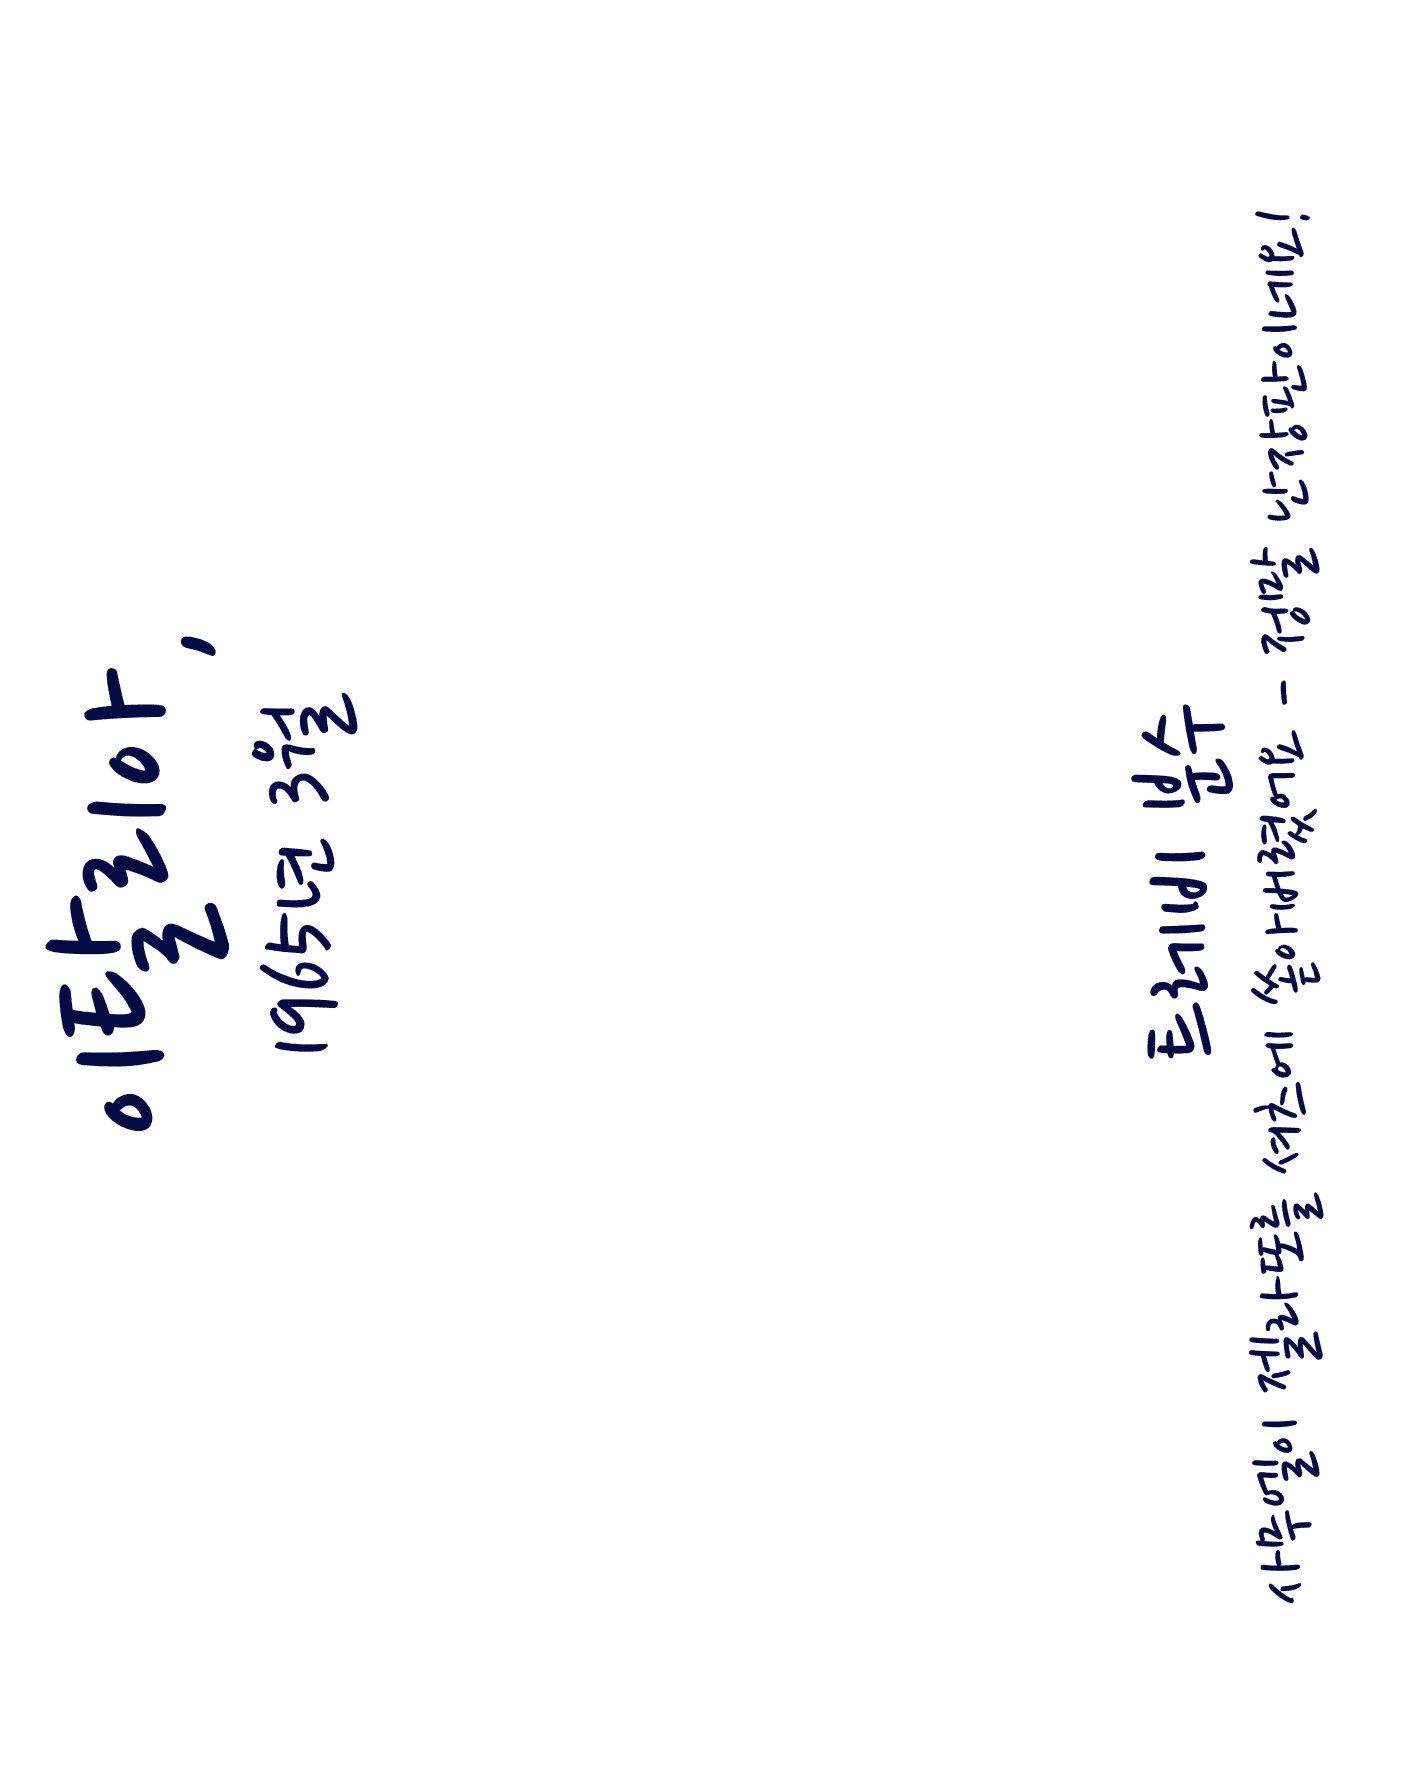 이탈리아,
1965년 3월
트레비 분수
사무엘이 젤라또를 셔츠에 쏟아버렸어요 - 정말 난장판이네요!